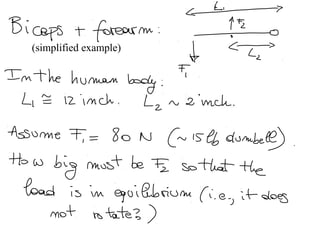 L₁
Biceps + forearm:
↑F₂
(simplified example)
L₂
F₁
In the human body:
L₁ ≅ 12 inch. L₂ ~ 2 inch.
Assume F₁ = 80 N (~15 lb dumbell).
How big must be F₂ so that the
load is in equilibrium (i.e., it does
not rotate?)